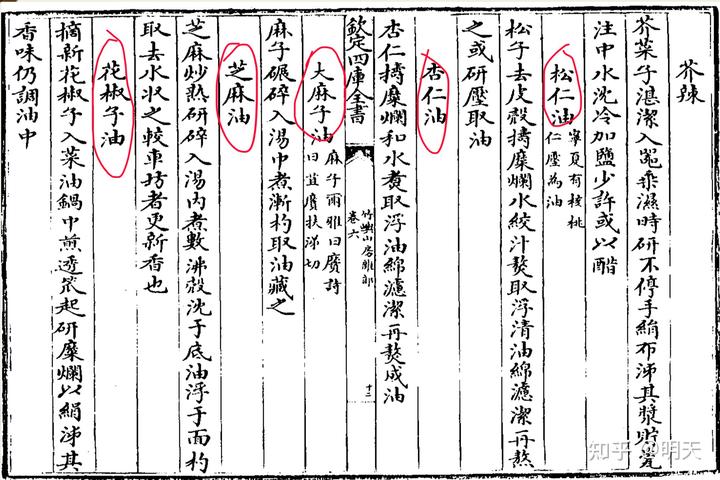 芥辣
芥菜子湛潔入甌乘濕時研不停手絹布涕其漿貯瓷
注中水沈冷加鹽少許或以醋
松仁油 寧夏有核桃
仁壓為油
松子去皮殼擣糜爛水絞汁熬取浮清油綿濾潔再熬
之或研壓取油
杏仁油
杏仁擣糜爛和水煑取浮油綿濾潔再熬成油
欽定四庫全書
竹嶼山房雜部
卷六
十二
大麻子油 麻子爾雅曰黂詩
曰苴黂扶涕切
麻子碾碎入湯中煮漸杓取油藏之
芝麻油
芝麻炒熟研碎入湯內煮數沸殼沈于底油浮于面杓
取去水收之較車坊者更新香也
花椒子油
摘新花椒子入菜油鍋中煎透笊起研糜爛以絹涕其
香味仍調油中
知乎 @明天